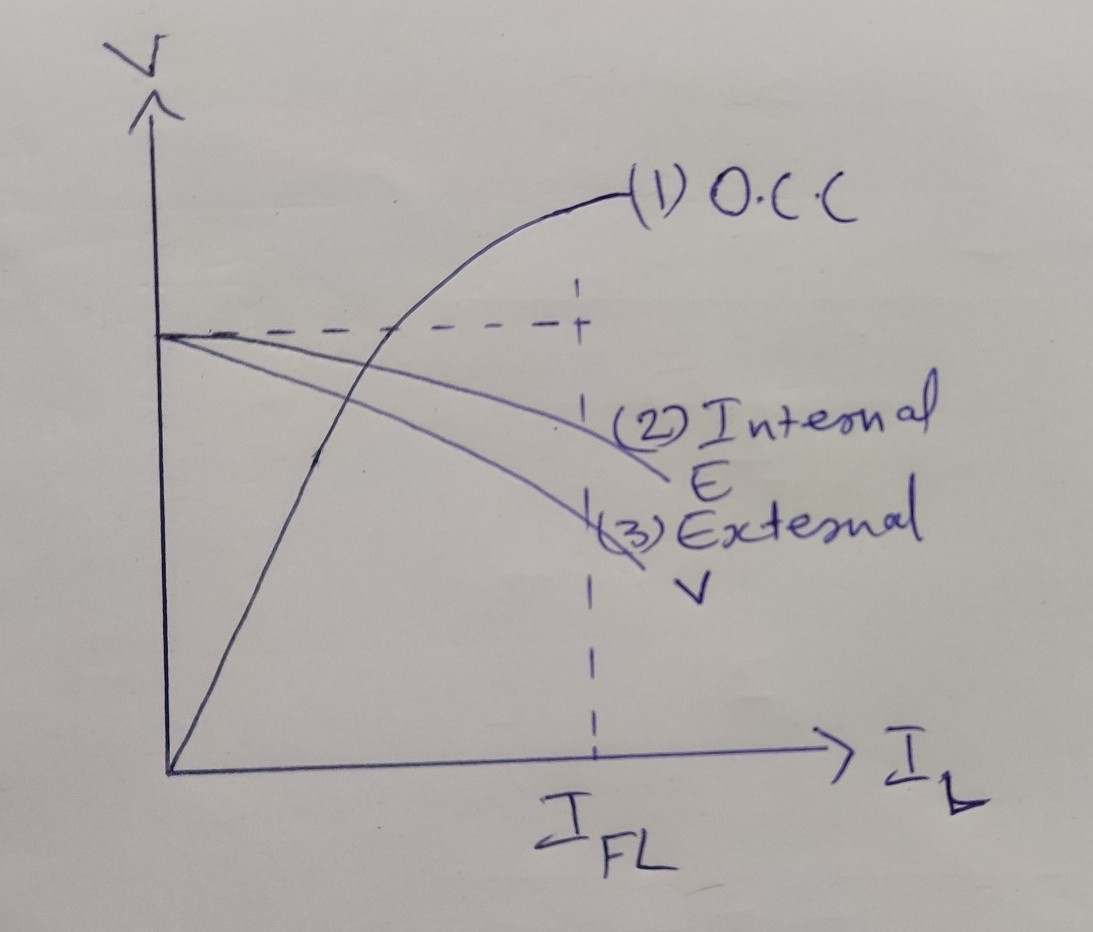 V
(1) O.C.C
(2) Internal
E
(3) External
V
I_L
I_FL